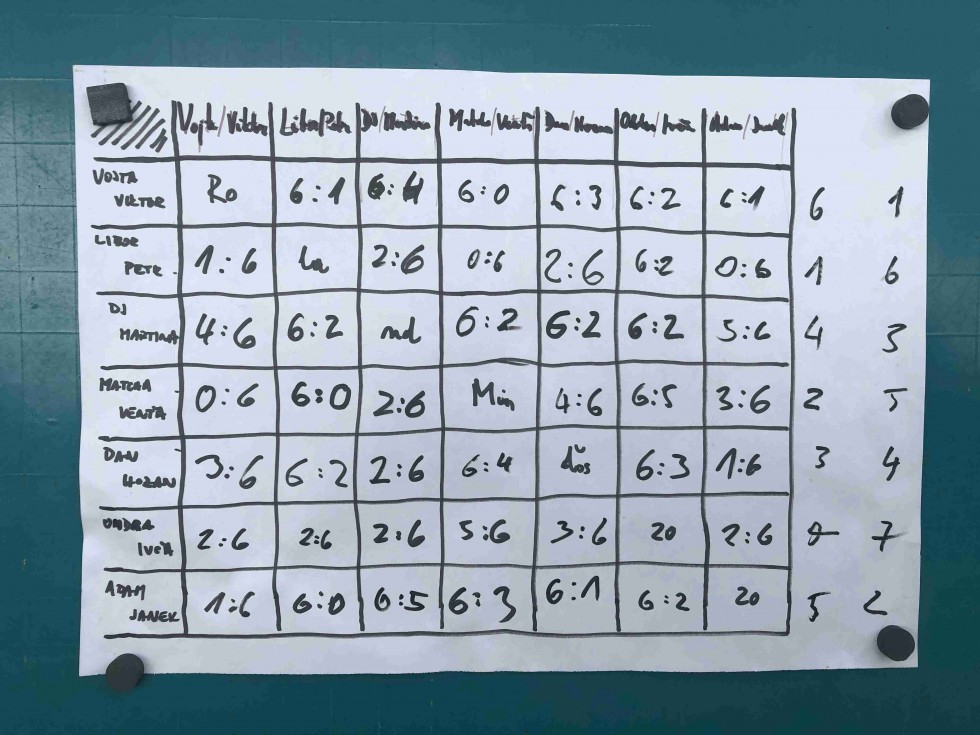 Vojta/Viktor Libor/Petr DJ/Martina Matcha/Venta Dan/Honza Ondra/Adam/
VOJTA VIKTOR Ro 6:1 6:4 6:0 6:3 6:2 6:1 6 1
LIBOR PETR 1:6 la 2:6 0:6 2:6 6:2 0:6 1 6
DJ MARTINA 4:6 6:2 nd 6:2 6:2 6:2 5:6 4 3
MATCHA 0:6 6:0 2:6 Min 4:6 6:5 3:6 2 5
DAN HOZAN 3:6 6:2 2:6 6:4 dŏs 6:3 1:6 3 4
ONDRA 2:6 2:6 2:6 5:6 3:6 20 2:6 0 7
ADAM JANEK 1:6 6:0 6:5 6:3 6:1 6:2 20 5 2